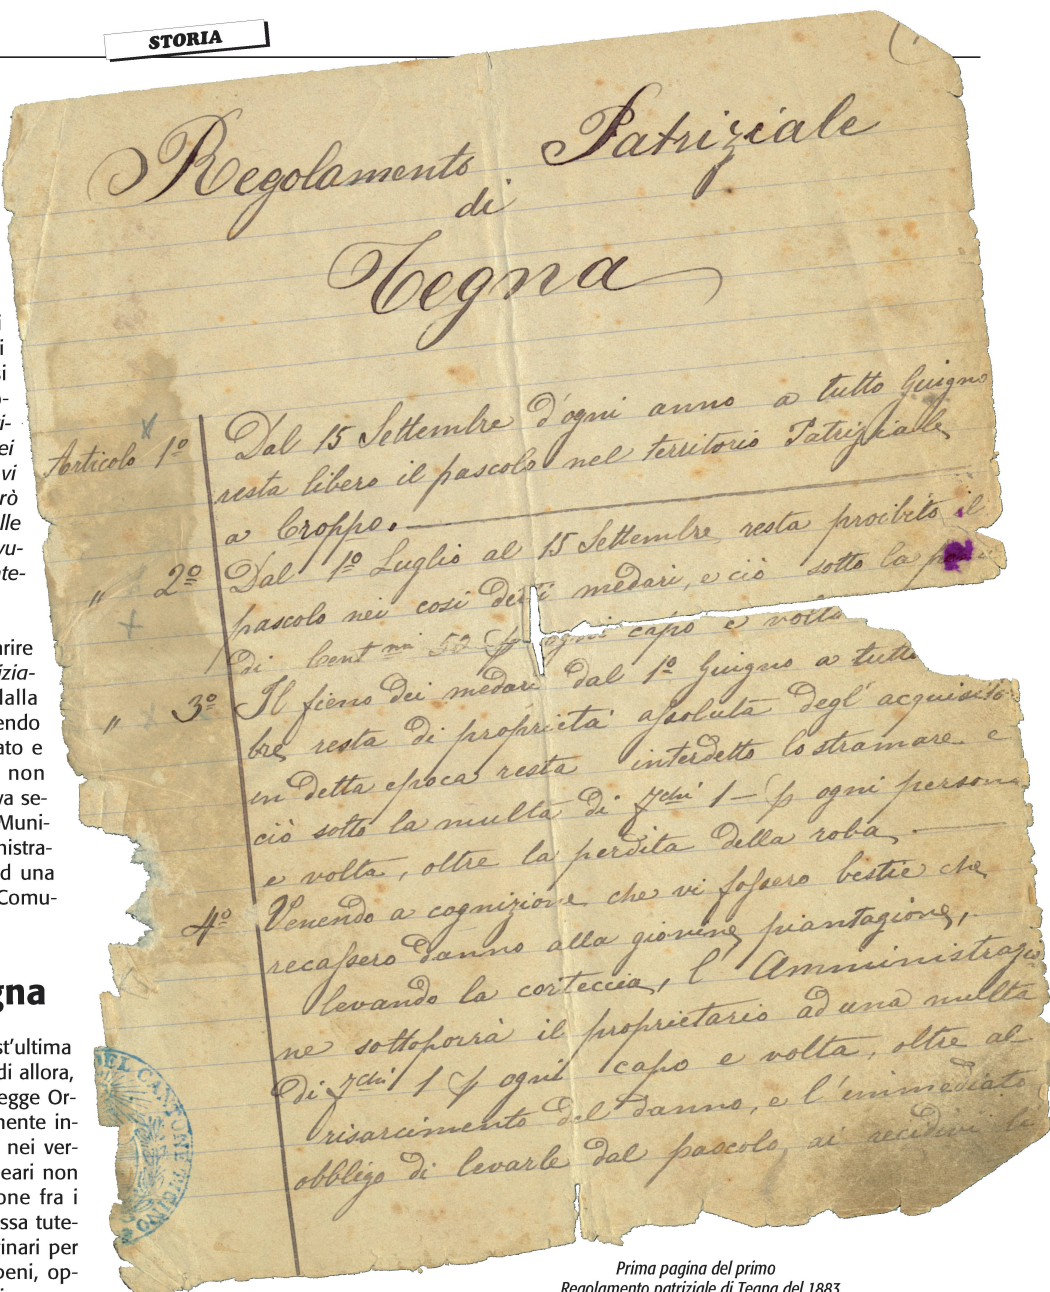 STORIA
Regolamento Patriziale
di
Tegna
Articolo 1º Dal 15 Settembre d'ogni anno a tutto Giugno
resta libero il pascolo nel territorio Patriziale
a Croppo.
" 2º Dal 1º Luglio al 15 Settembre resta proibito il
pascolo nei cosi detti medari, e ciò sotto la
di Cent mi 52 ogni capo e volta
" 3º Il fieno dei medari dal 1º Giugno a tutto
bre resta di proprietà assoluta degl'
in detta epoca resta interdetto lo stramare e
ciò sotto la multa di fchi 1 – p ogni persona
e volta, oltre la perdita della roba.
4º Venendo a cognizione che vi fossero bestie che
recassero danno alla giovine piantagione,
levando la corteccia, l'Amministrazio
ne sottoporrà il proprietario ad una multa
di fchi 1 p ogni capo e volta, oltre al
risarcimento del danno, e l'immediato
obbligo di levarle dal pascolo, ai recidivi
DEL CANTONE TICINO
i
i
si
o-
ri-
ei
vi
rò
lle
vu-
nte-
arire
izia-
dalla
endo
ato e
non
va se-
Muni-
nistra-
d una
Comu-
gna
st'ultima
di allora,
egge Or-
mente in-
nei ver-
eari non
one fra i
ssa tute-
inari per
beni, op-
Prima pagina del primo
Regolamento patriziale di Tegna del 1883